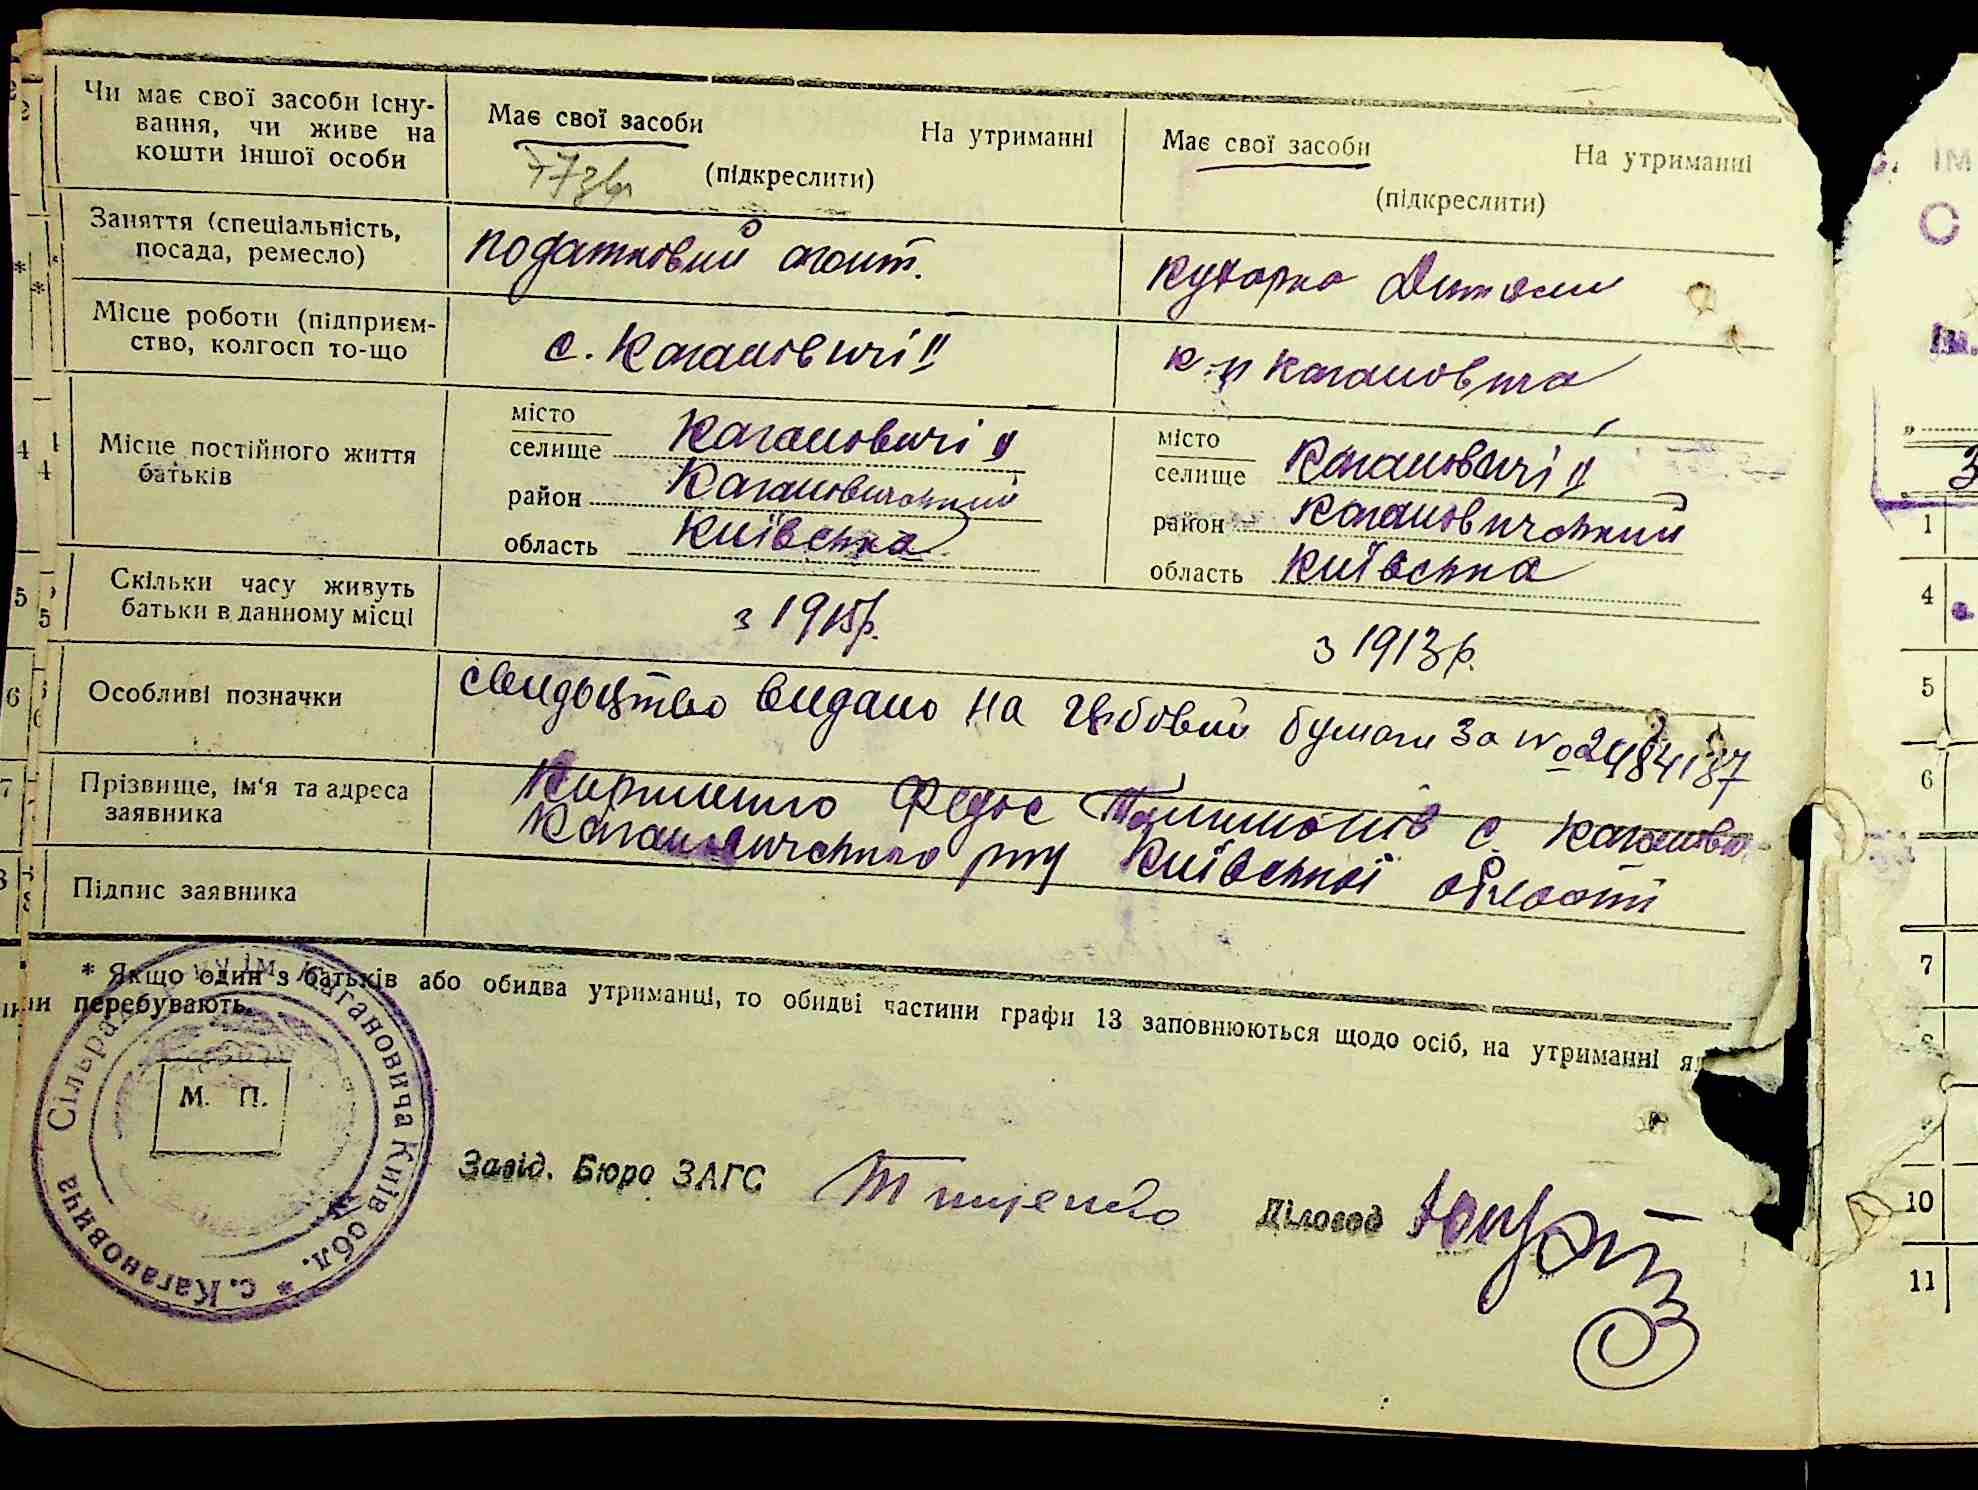 Чи має свої засоби існу-
вання, чи живе на
кошти іншої особи
Має свої засоби
На утриманні
(підкреслити)
Має свої засоби
На утриманні
(підкреслити)
Заняття (спеціальність,
посада, ремесло)
податковий агент.
кухарка
Місце роботи (підприєм-
ство, колгосп то-що
с. Кагановичі ІІ
Кагановича
Місце постійного життя
батьків
місто
селище Кагановичі ІІ
район Кагановичський
область Київська
місто
селище Кагановичі ІІ
район Кагановичський
область Київська
Скільки часу живуть
батьки в данному місці
з 1915р.
з 1913р.
Особливі позначки
свидоцтво видано на гербовий бумаги за № 2484187
Прізвище, ім'я та адреса
заявника
Федос с. Каганови-
Кагановичського р-ну Київської області
Підпис заявника
* Якщо один з батьків або обидва утриманці, то обидві частини графи 13 заповнюються щодо осіб, на утриманні як
ни перебувають.
Сільрада ім. Кагановича Київ обл. * с. Кагановича
М. П.
Завід. Бюро ЗАГС
Діловод
1
4
5
6
7
10
11